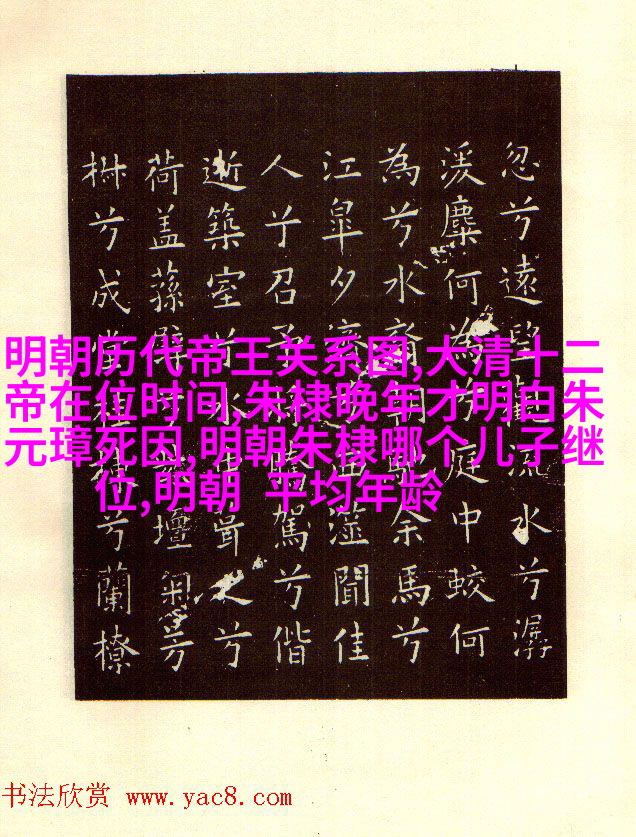 忽兮遠望觀流水兮潺
湲麋何為兮庭中蛟何
為兮水裔朝馳余馬兮
江皐夕濟兮西澨聞佳
人兮召予將騰駕兮偕
逝築室兮水中葺之兮
荷盖蓀壁兮紫壇芳
兮成堂桂棟兮蘭橑
明朝历代帝王关系图,大清十二
帝在位时间,朱棣晚年才明白朱
元璋死因,明朝朱棣哪个儿子继
位,明朝 平均年龄
书法欣赏 www.yac8.com